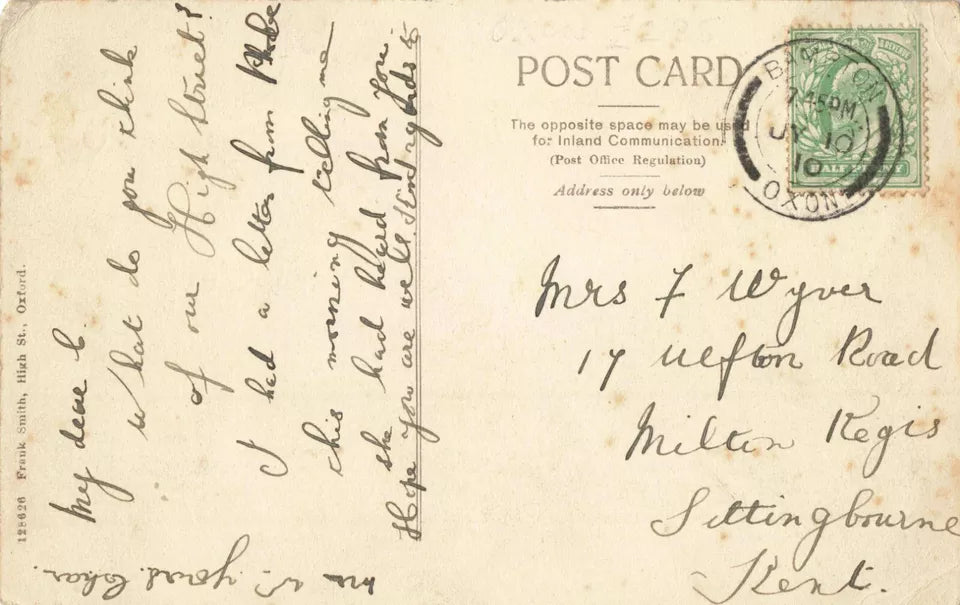 POST CARD
The opposite space may be used
for Inland Communication.
(Post Office Regulation)
Address only below
BAMPTON
7.45PM
JY 10
10
OXON
HALFPENNY
Mrs F Wyver
17 Ufton Road
Milton Regis
Sittingbourne
Kent.
My dear C.
What do you think
of our High Street?
I had a letter from Phobe
this morning telling me
she had heard from you.
Hope you are well. Kind regards to
Mr W. yours. Char.
128626 Frank Smith, High St., Oxford.